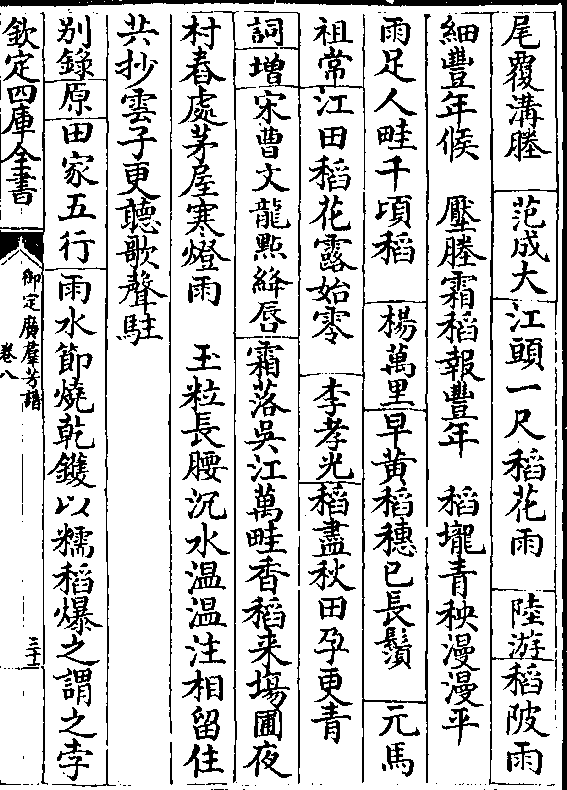 尾覆溝塍　范成大江頭一尺稻花雨　陸游稻陂雨
細豐年候　壓塍霜稻報豐年　稻壠青秧漫漫平
雨足人畦千頃稻　楊萬里早黃稻穗已長鬚　元馬
祖常江田稻花露始零　李孝光稻盡秋田孕更青
詞增宋曹文龍點絳唇霜落吳江萬畦香稻来場圃夜
村舂處茅屋寒燈雨　玉粒長腰沉水温温注相留住
共抄雲子更聽歌聲駐
别錄原田家五行雨水節燒乾鑊以糯稻爆之謂之孛
欽定四庫全書
御定廣羣芳譜
卷八
三十二